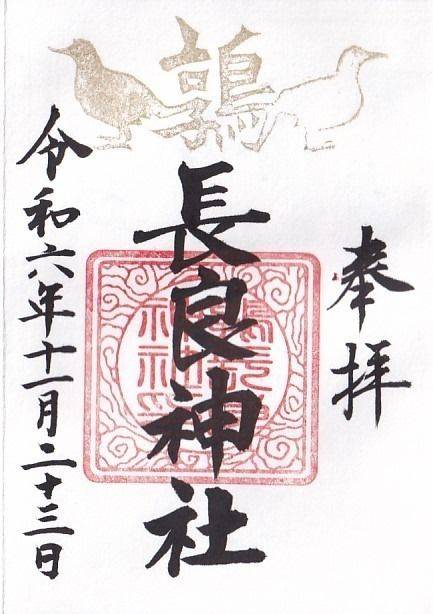 鶉
奉拝
長良神社
令和六年十一月二十三日